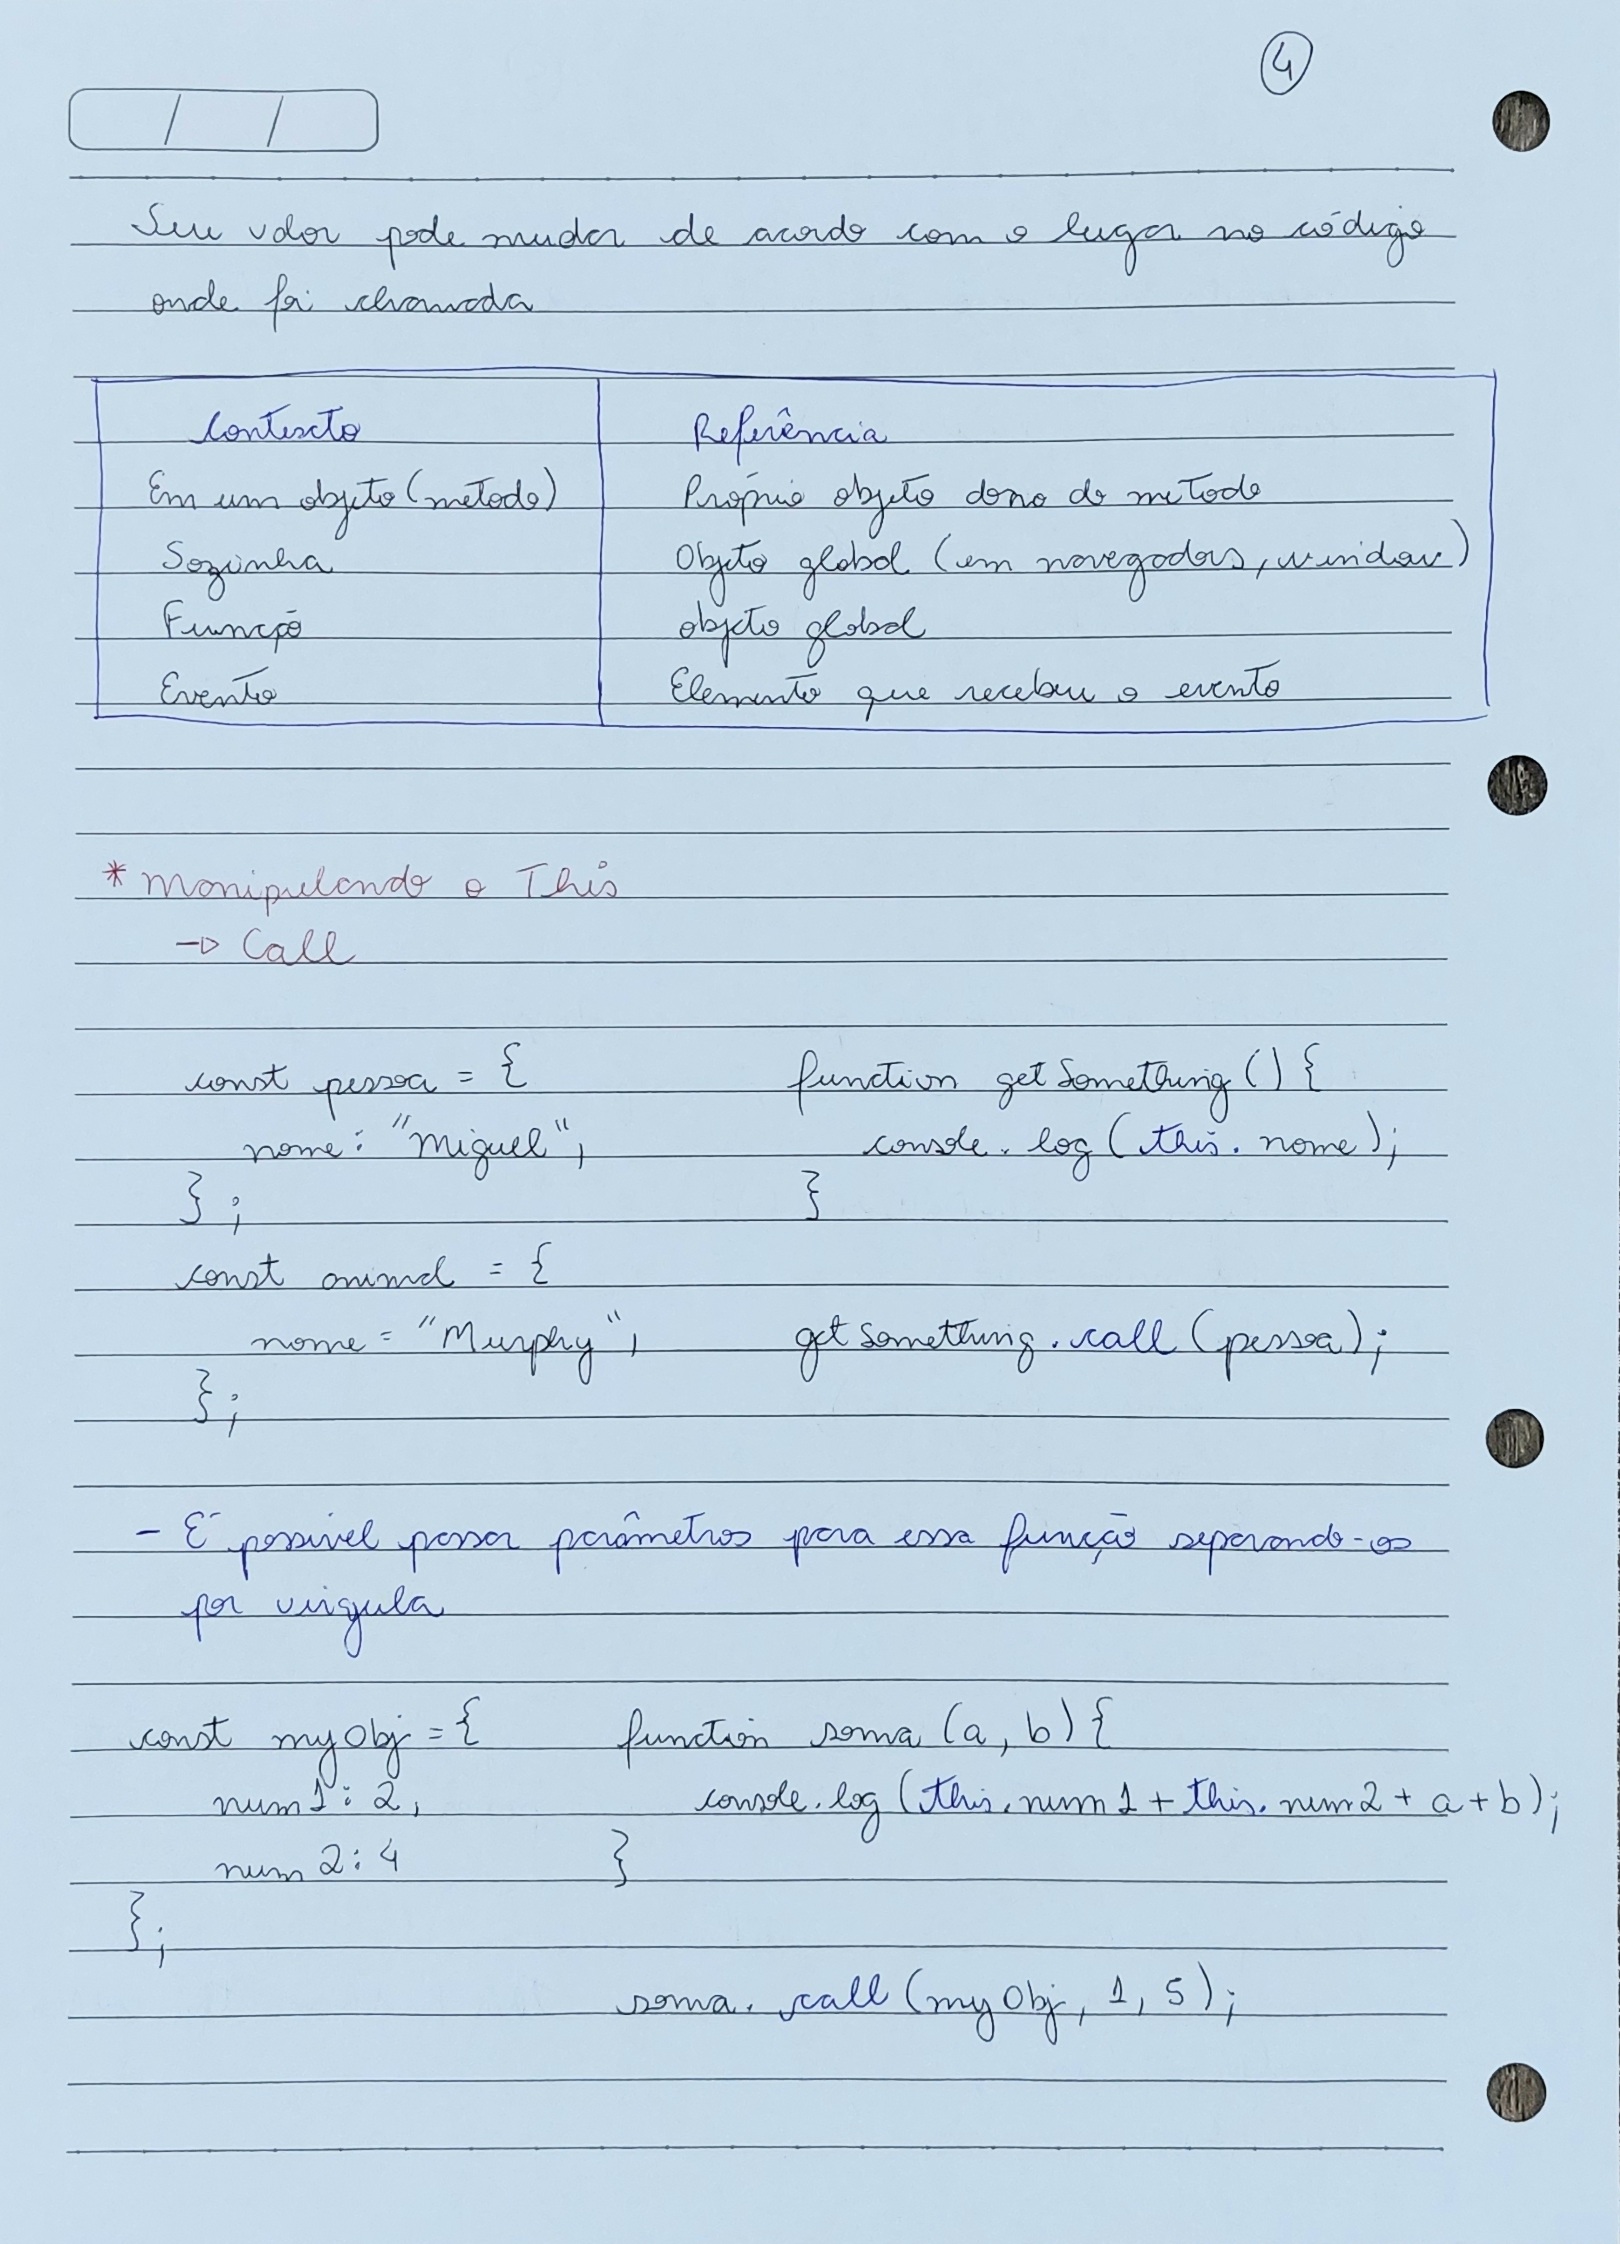 4
/ /
Seu valor pode mudar de acordo com o lugar no código
onde foi chamada
Contexto Referência
Em um objeto (metodo) Próprio objeto dono do metodo
Sozinha Objeto global (em navegadores, window)
Função objeto global
Evento Elemento que recebeu o evento
* Manipulando o This
→ Call
const pessoa = { function getSomething () {
nome: "Miguel", console.log (this.nome);
}; }
const animal = {
nome = "Murphy", getSomething.call (pessoa);
};
- É possivel passar parâmetros para essa função separando-os
por virgula
const myObj = { function soma (a, b) {
num1: 2, console.log (this.num1 + this.num2 + a + b);
num2: 4 }
};
soma.call (myObj, 1, 5);